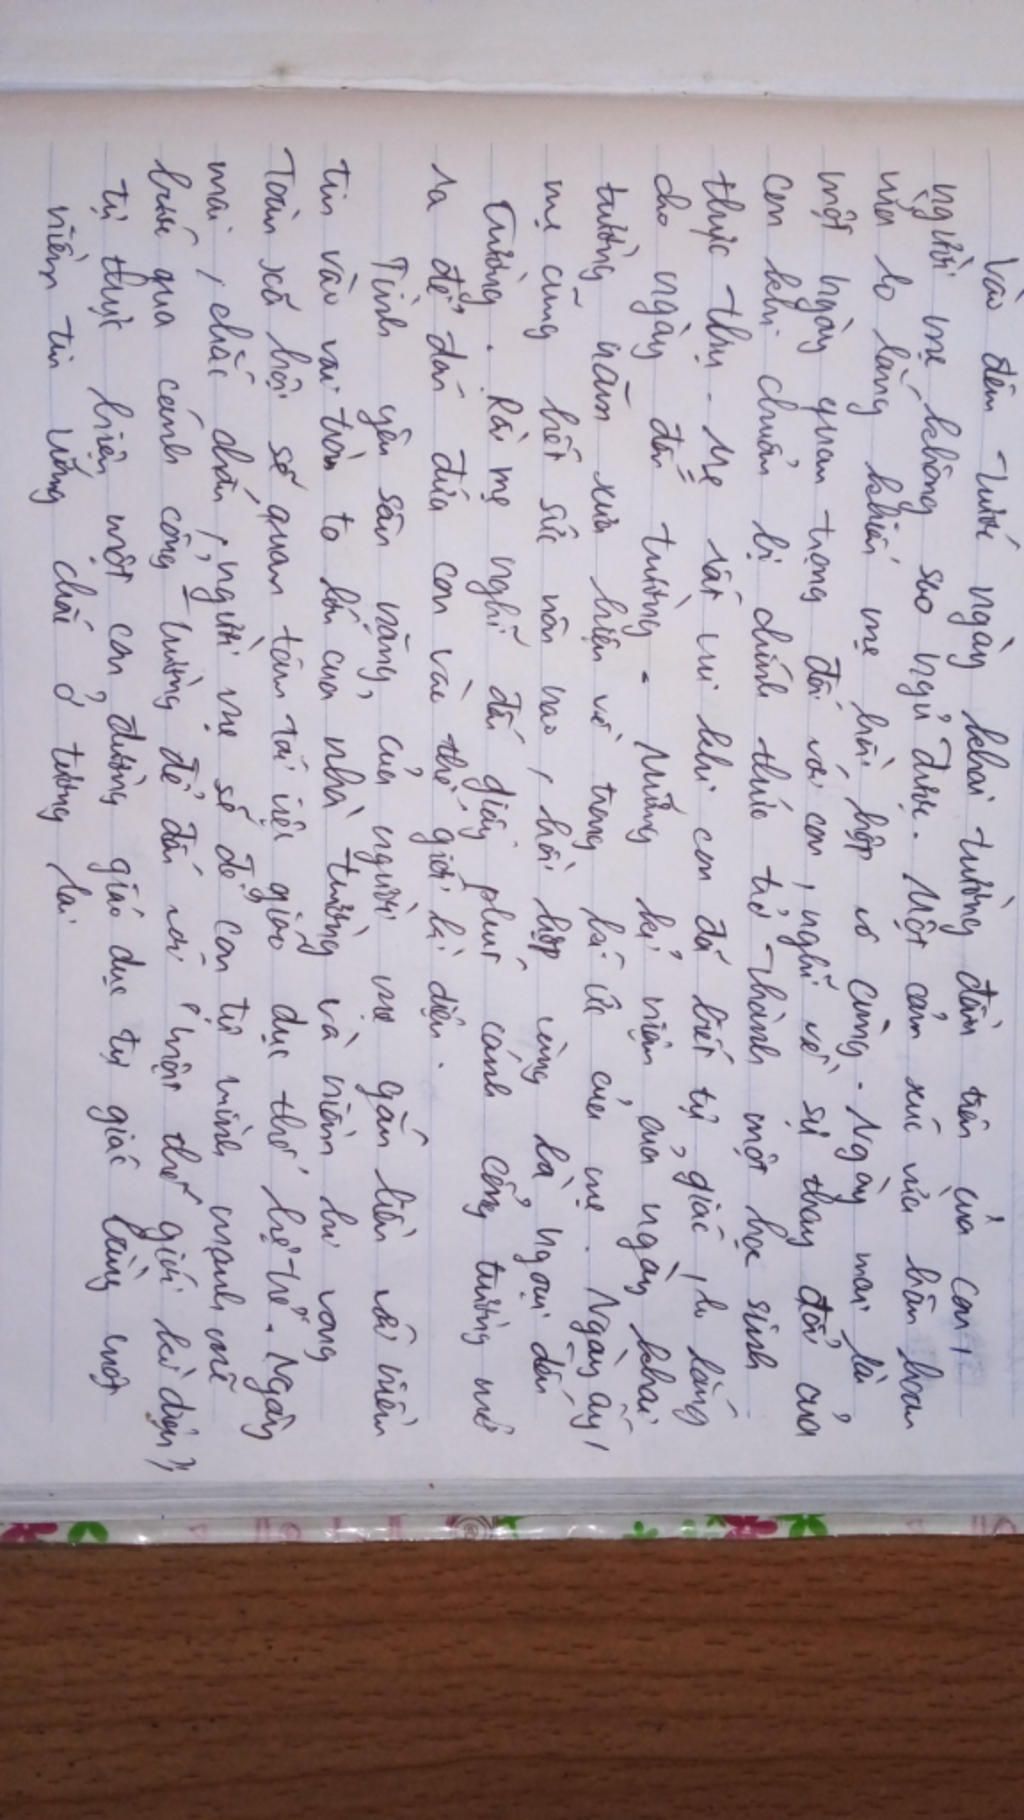 Vào đêm trước ngày khai trường đầu tiên của con,
người mẹ không sao ngủ được. Một cảm xúc vừa hân hoan
vừa lo lắng khiến mẹ hồi hộp vô cùng. Ngày mai là
một ngày quan trọng đối với con, nghĩ về sự thay đổi của
con khi chuẩn bị chính thức trở thành một học sinh
thực thụ. Mẹ rất vui khi con đã biết tự giác, lo lắng
cho ngày đến trường. Những kỉ niệm của ngày khai
trường năm xưa hiện về trong kí ức của mẹ. Ngày ấy,
mẹ cũng hết sức nôn nao, hồi hộp cùng bà ngoại đến
trường. Rồi mẹ nghĩ đến giây phút cánh cổng trường mở
ra để đón đứa con vào thế giới kì diệu.
Tình yêu sâu nặng của người mẹ gắn liền với niềm
tin vào vai trò to lớn của nhà trường và niềm hi vọng
Toàn xã hội sẽ quan tâm tới việc giáo dục thế hệ trẻ. Ngày
mai, chắc chắn, người mẹ sẽ để con tự mình mạnh mẽ
bước qua cánh cổng trường để đến với "một thế giới kì diệu",
tự thực hiện một con đường giáo dục tự giác bằng một
niềm tin vững chắc ở tương lai.